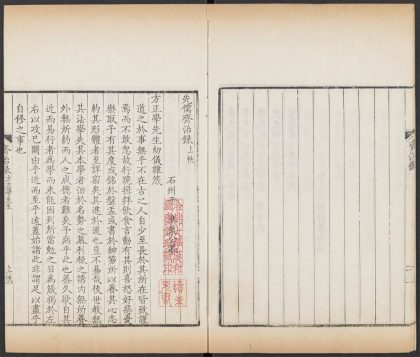 先儒齊治錄 上帙
石州于
方正學先生幼儀雜箴
道之於事無乎不在古之人自少至長於其所在皆致謹
焉而不敢忽故行跪揖拜飲食言動有其則喜怒好惡憂
樂取予有其度或銘於盤盂或書於紳笏所以養其心志
約其形體者至詳密矣其進於道也豈不易哉後世教無
其法學失其本學者汩於名勢之慕利祿之誘內無所養
外無所約而人之成德者難矣予病乎此也蓋久欲自其
近而易行者為學而未能因列所當勉之目為箴揭於左
右以攻己闕由乎近而至乎遠蓋始諸此非謂足以盡乎
自修之事也
齊治錄 方正學先生 上帙